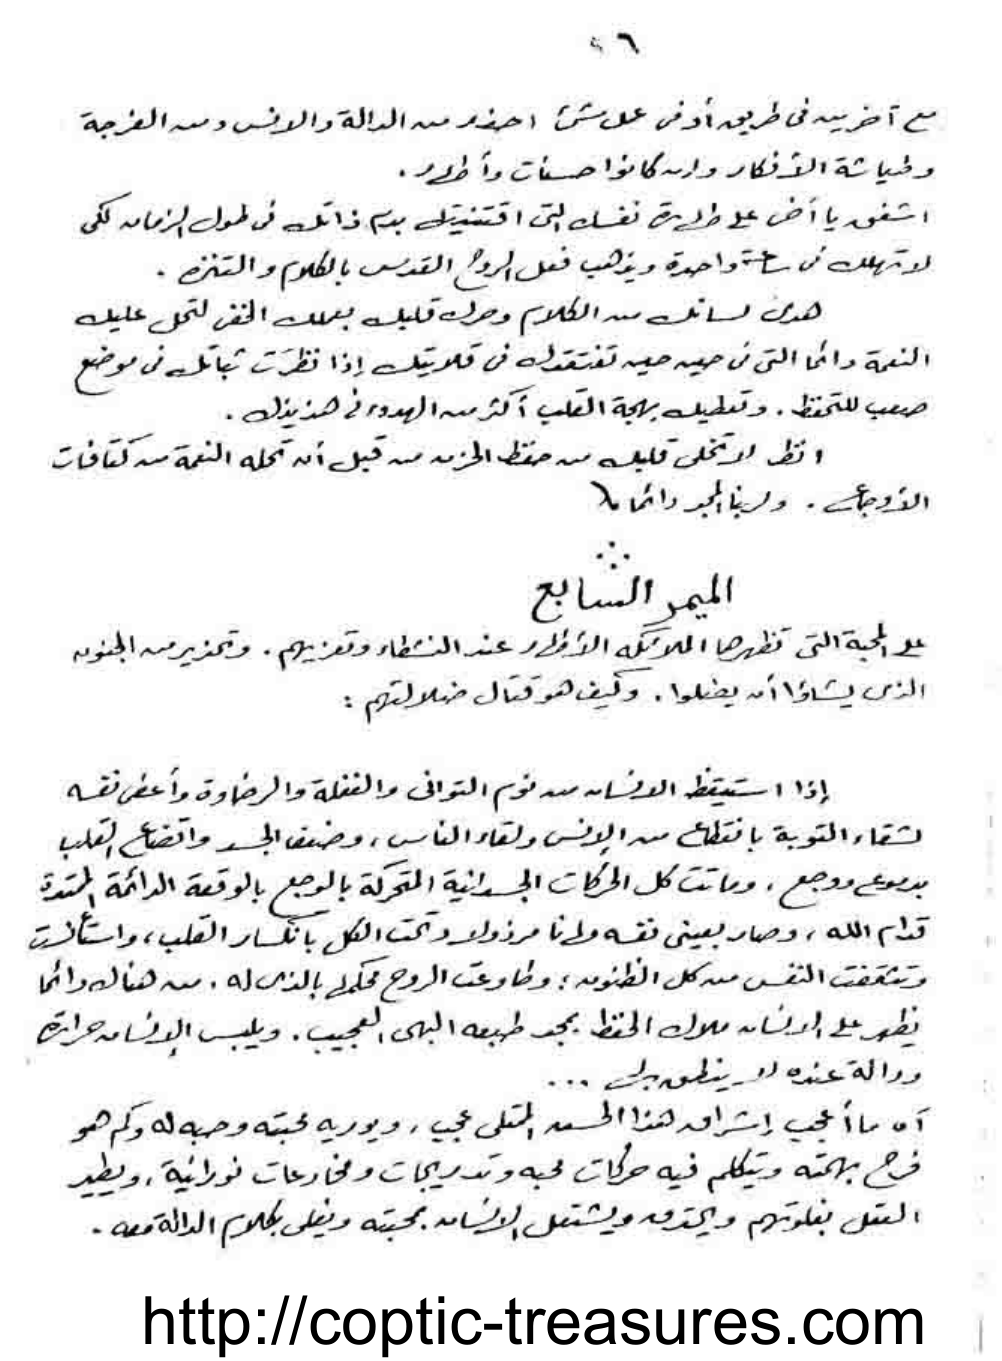 ٥٦
مع آخرين فى طريق أو فى عمل شئ احذر من الدالة والانس ومن الفرجة
وطياشة الأفكار وان كانوا حسنات وأطهار .
اشفق يا أخى على طهارة نفسك التى اقتنيتها بدم ذاتك فى طول الزمان لكى
لا تهلك فى ساعة واحدة ويذهب فعل الروح القدس بالكلام والتنزه .
هدئ لسانك من الكلام وحرك قلبك بعملك الخفى لتحل عليك
النعمة دائما التى فى حين حين تفتقدك فى قلايتك إذا نظرت ثباتك فى موضع
صعب للتحفظ . وتعطيك بهجة القلب أكثر من الهدوء فى هذيذك .
انظر لا تخلى قلبك من حفظ الحزن من قبل أن تحله النعمة من كثافات
الأوجاع . ولربنا المجد دائما
الميمر السابع
على المحبة التى تظهرها الملائكة الأطهار عند النشطاء وتعزيهم . وتحذير من الجنون
الذى يشاؤا أن يضلوا . وكيف هو قتال ضلالتهم :
إذا استيقظ الانسان من نوم التوانى والغفلة والرخاوة وأعطى نفسه
لشقاء التوبة بانقطاع من الإنس ولقاء الناس ، وضعف الجسد واتضاع القلب
بدموع ووجع ، وماتت كل الحركات الجسدانية المتحركة بالوجع بالوقعة الدائمة الممتدة
قدام الله ، وصار بعينى نفسه مهانا مرذولا وتحت الكل بانكسار القلب ، واستأنست
وتثقفت النفس من كل الظنون ؛ وطاوعت الروح محكها بالذى له . من هناك دائما
يظهر على الانسان ملاك الحفظ بمجد طبعه البهى العجيب . ويلبس الإنسان حرارة
ودالة عنده لا ينطق بها ...
آه ما أعجب إشراق هذا الحسن الممتلى عجب ، ويوريه محبته وحبه له وكم هو
فرح بهجته ويتكلم فيه حركات محبه وتدريجات ومخادعات نورانية ، ويطير
العقل بفلوتهم ويحترق ويشتعل الانسان بمحبته ويغلى بكلام الدالة معه .
http://coptic-treasures.com